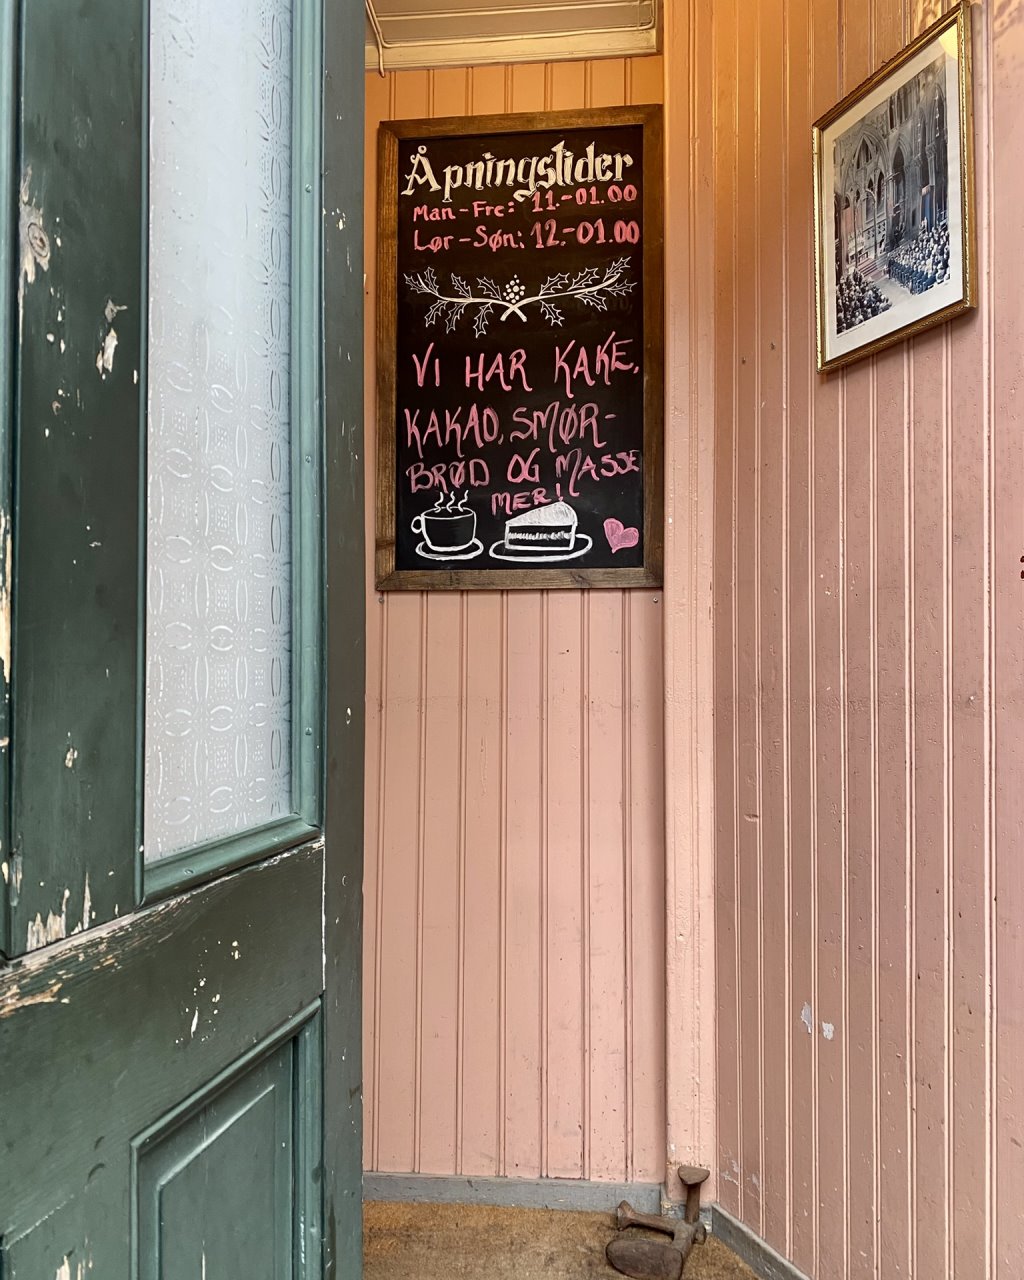 Åpningstider
Man-Fre: 11.-01.00
Lør-Søn: 12.-01.00
VI HAR KAKE,
KAKAO, SMØR-
BRØD OG MASSE
MER!